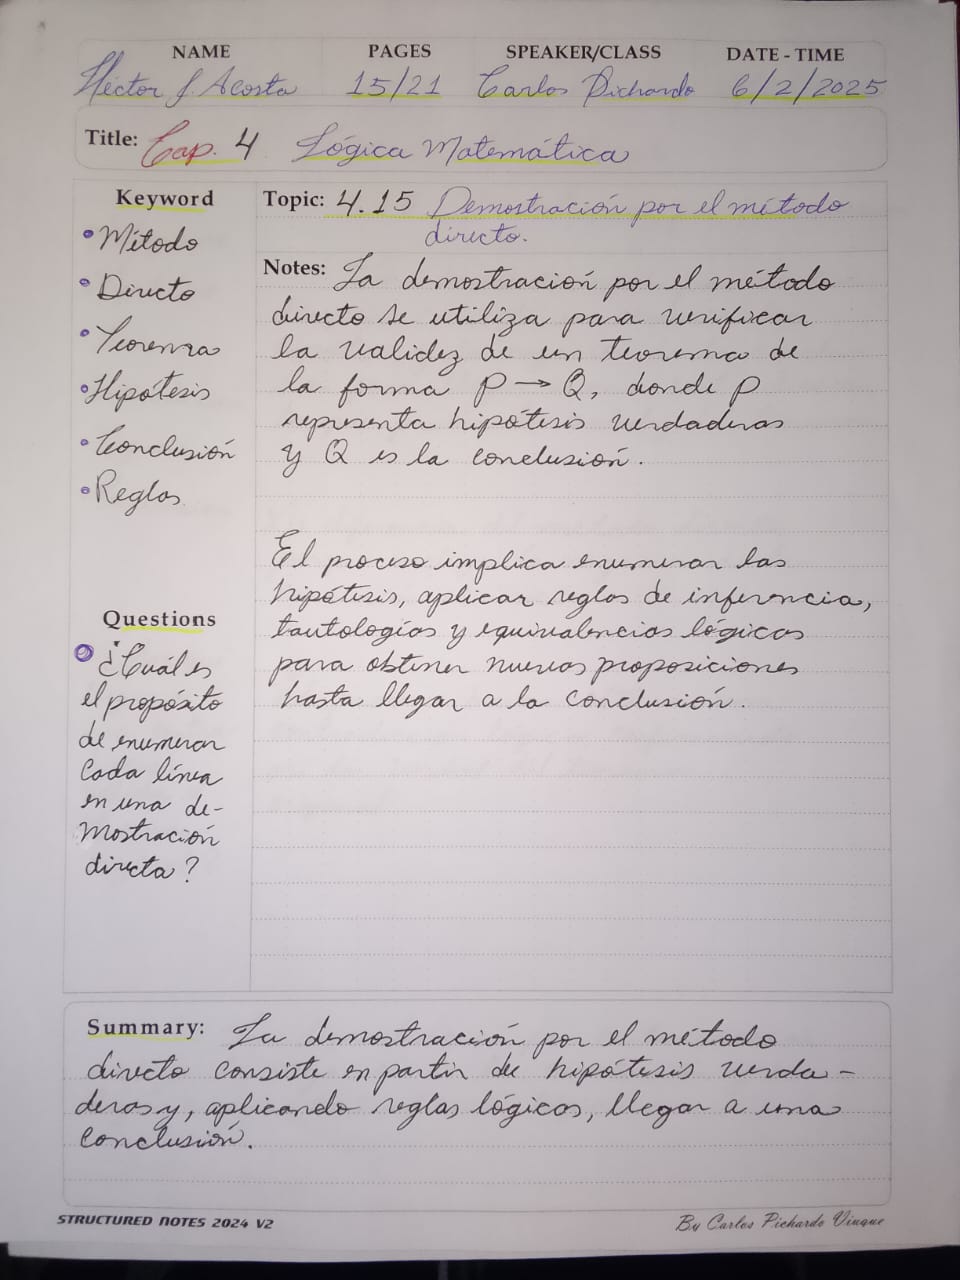 NAME PAGES SPEAKER/CLASS DATE - TIME
Héctor J. Acosta 15/21 Carlos Pichardo 6/2/2025
Title: Cap. 4 Lógica Matemática
Keyword
• Método
• Directo
• Teorema
• Hipótesis
• Conclusión
• Reglas
Questions
¿Cuál es
el propósito
de enumerar
cada línea
en una de-
mostración
directa?
Topic: 4.15 Demostración por el método
directo.
Notes: La demostración por el método
directo se utiliza para verificar
la validez de un teorema de
la forma P → Q, donde P
representa hipótesis verdaderas
y Q es la conclusión.
El proceso implica enumerar las
hipótesis, aplicar reglas de inferencia,
tautologías y equivalencias lógicas
para obtener nuevas proposiciones
hasta llegar a la conclusión.
Summary: La demostración por el método
directo consiste en partir de hipótesis verda-
deras y, aplicando reglas lógicas, llegar a una
conclusión.
STRUCTURED NOTES 2024 V2 By Carlos Pichardo Viuque